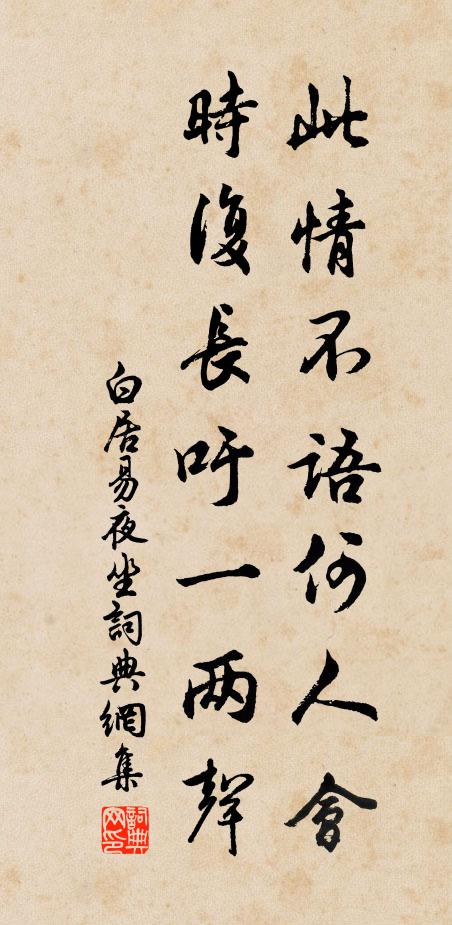 此情不語何人會
時復長吁一两聲
白居易夜坐詞典網集
詞典网印